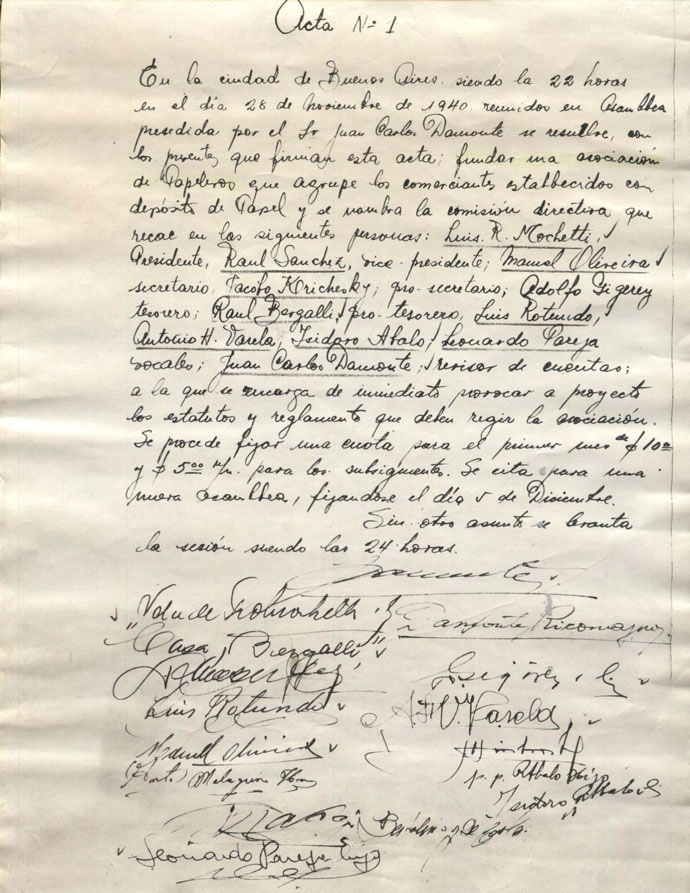 Acta Nº 1
En la ciudad de Buenos Aires, siendo la 22 horas
en el día 28 de Noviembre de 1940 reunidos en Asamblea
presedida por el Sr Juan Carlos Damonte se resuelve, con
los presentes que firman esta acta; fundar una asociación
de Papeleros que agrupe los comerciantes establecidos con
depósito de Papel y se nombra la comisión directiva que
recae en las siguientes personas: Luis. R. Mochetti,
Presidente, Raul Sanchez, vice-presidente; Manuel Oliveira
secretario, Jacobo Krichesky; pro-secretario; Adolfo
tesorero; Raul Bergalli, pro-tesorero, Luis Rotundo,
Antonio H. Varela, Isidoro Abalo, Leonardo Pareja
vocales; Juan Carlos Damonte; revisor de cuentas;
a la que se encarga de inmediato a proyecto
los estatutos y reglamento que deben regir la asociación.
Se procede fijar una cuota para el primer mes de $ 10.00
y $ 5.00 m/n. para los subsiguientes. Se cita para una
nueva asamblea, fijandose el día 5 de Diciembre.
Sin otro asunto se levanta
la sesión siendo las 24 horas.
"Casa Bergalli"
Luis Rotundo
Varela
Manuel Oliveira
p. p. Abalo
Isidoro Abalo
Leonardo Pareja